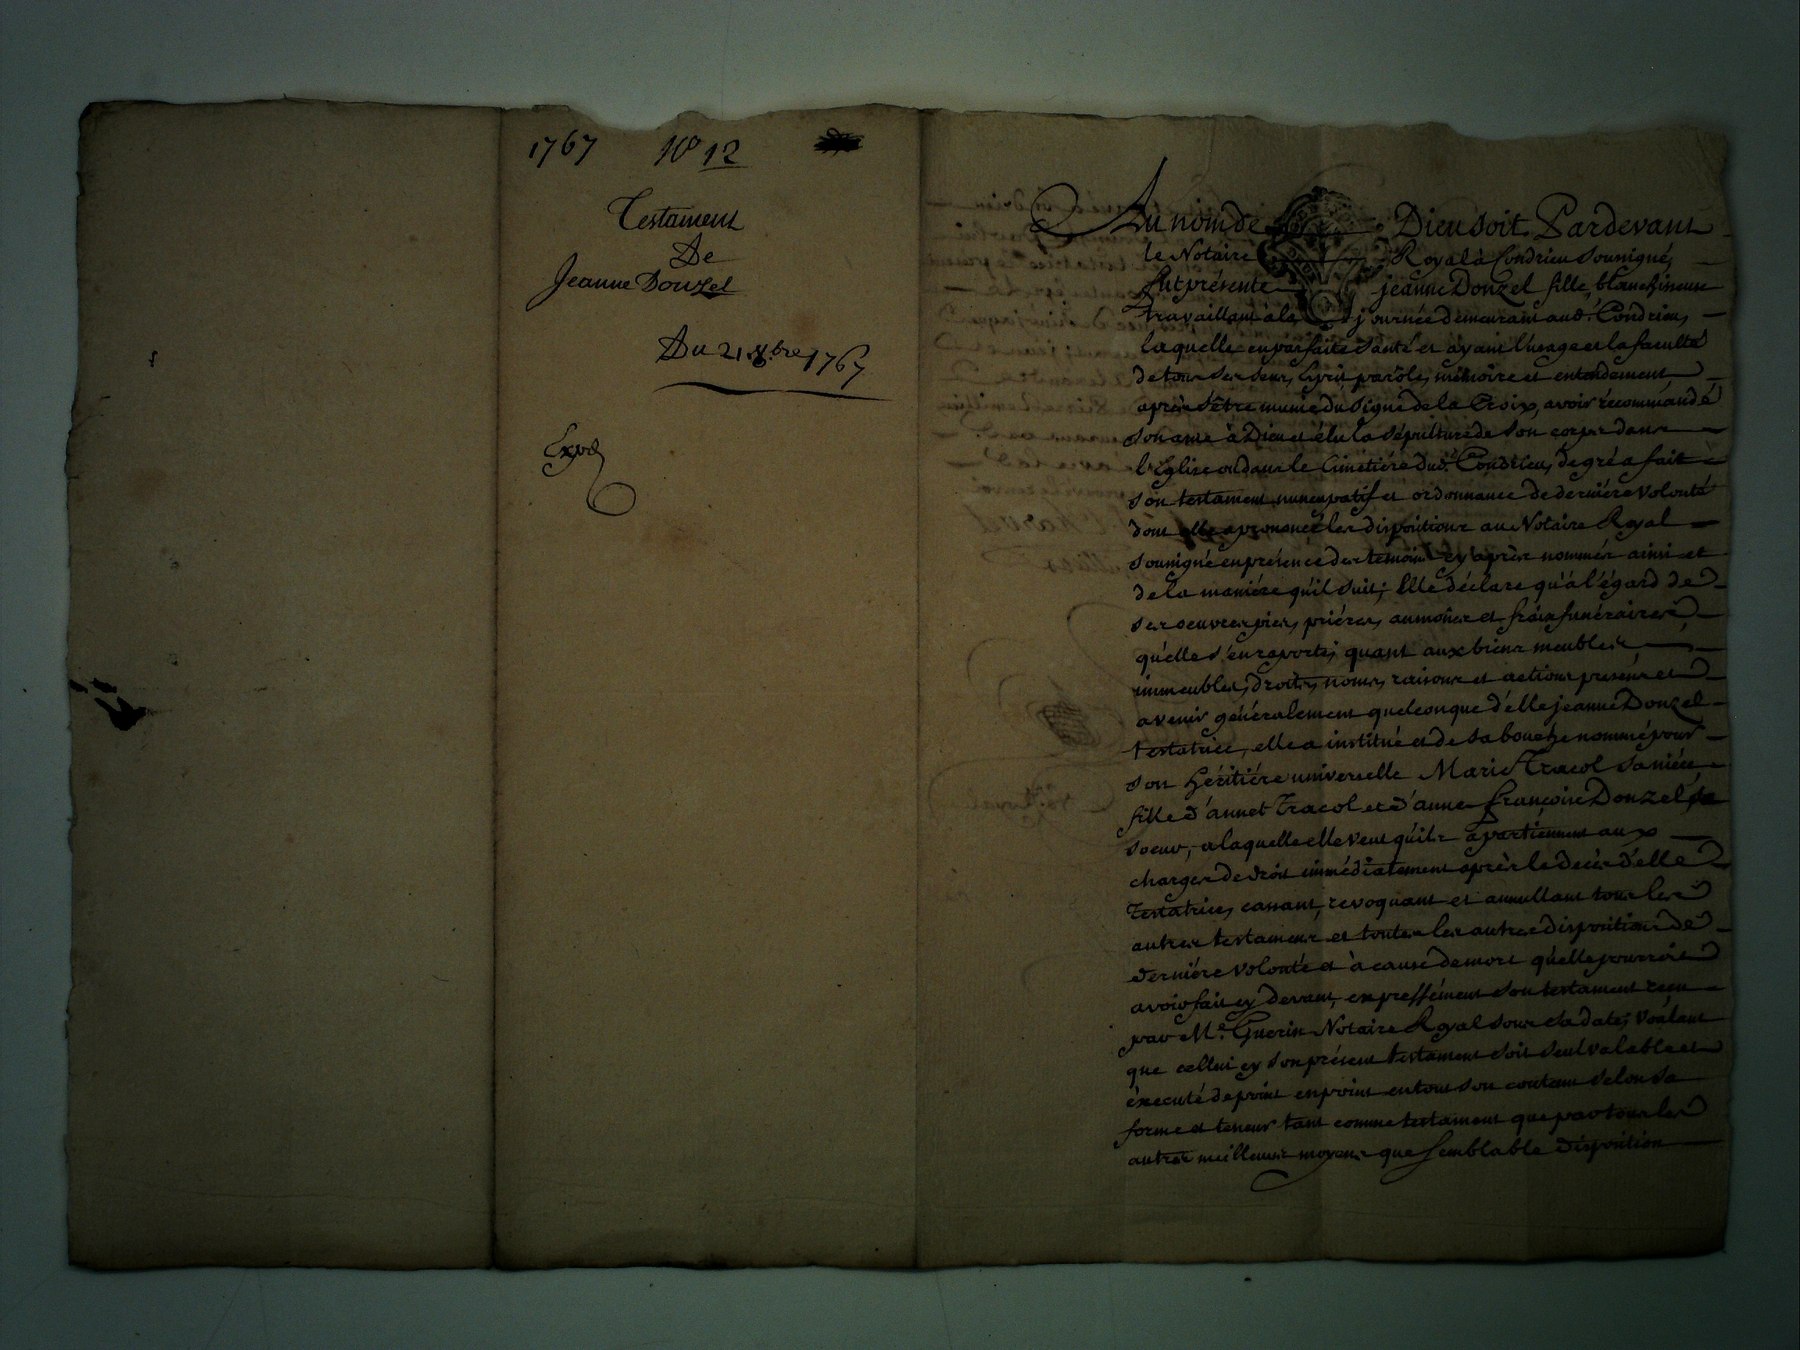 1767 No 12
Testament
De
Jeanne Donzel
Du 21 xbre 1767
Expé
Au nom de Dieu soit Pardevant
le Notaire Royal à Condrieu soussigné,
fut présente jeanne Donzel fille, blanchisseuse
travaillant à la journée demeurant aud. Condrieu,
laquelle en parfaite santé et ayant l'usage et la faculté
de tous ses sens, esprit parole, mémoire et entendement
après s'être munie du signe de la Croix, avoir recommandé
son ame à Dieu et élu la sépulture de son corps dans
l'Eglise ou dans le Cimetiére dud. Condrieu, de gré a fait
son testament nuncupatif et ordonnance de derniére volonté
dont elle a prononcé les dispositions au Notaire Royal
soussigné en présence des temoins cy après nommés ainsi et
de la maniére qu'il suit; Elle déclare qu'à l'égard de
ses oeuvres pies, priéres, aumônes et frais funéraires
qu'elle s'en raporte; quant aux biens meubles
immeubles, droits, noms, raisons et actions présens et
avenir généralement quelconque d'elle jeanne Donzel
testatrice, elle a institué et de sa bouche nommé pour
son héritiére universelle Marie Tracol sa niéce
fille d'annet Tracol et d'anne françoise Donzel sa
soeur, a laquelle elle veut qu'ils apartiennent aux
charges de droit immédiatement après le decès d'elle
Testatrice, cassant, revoquant et annullant tous les
autres testamens et toutes les autres dispositions de
derniére volonté et à cause de mort qu'elle pourroit
avoir fait cy devant, expressément son testament reçu
par Me. Guerin Notaire Royal sous sa date; voulant
que cellui cy son présent testament soit seul valable et
éxecuté de point en point en tout son contenu selon sa
forme et teneur tant comme testament que par tous les
autres meilleurs moyens que semblable disposition